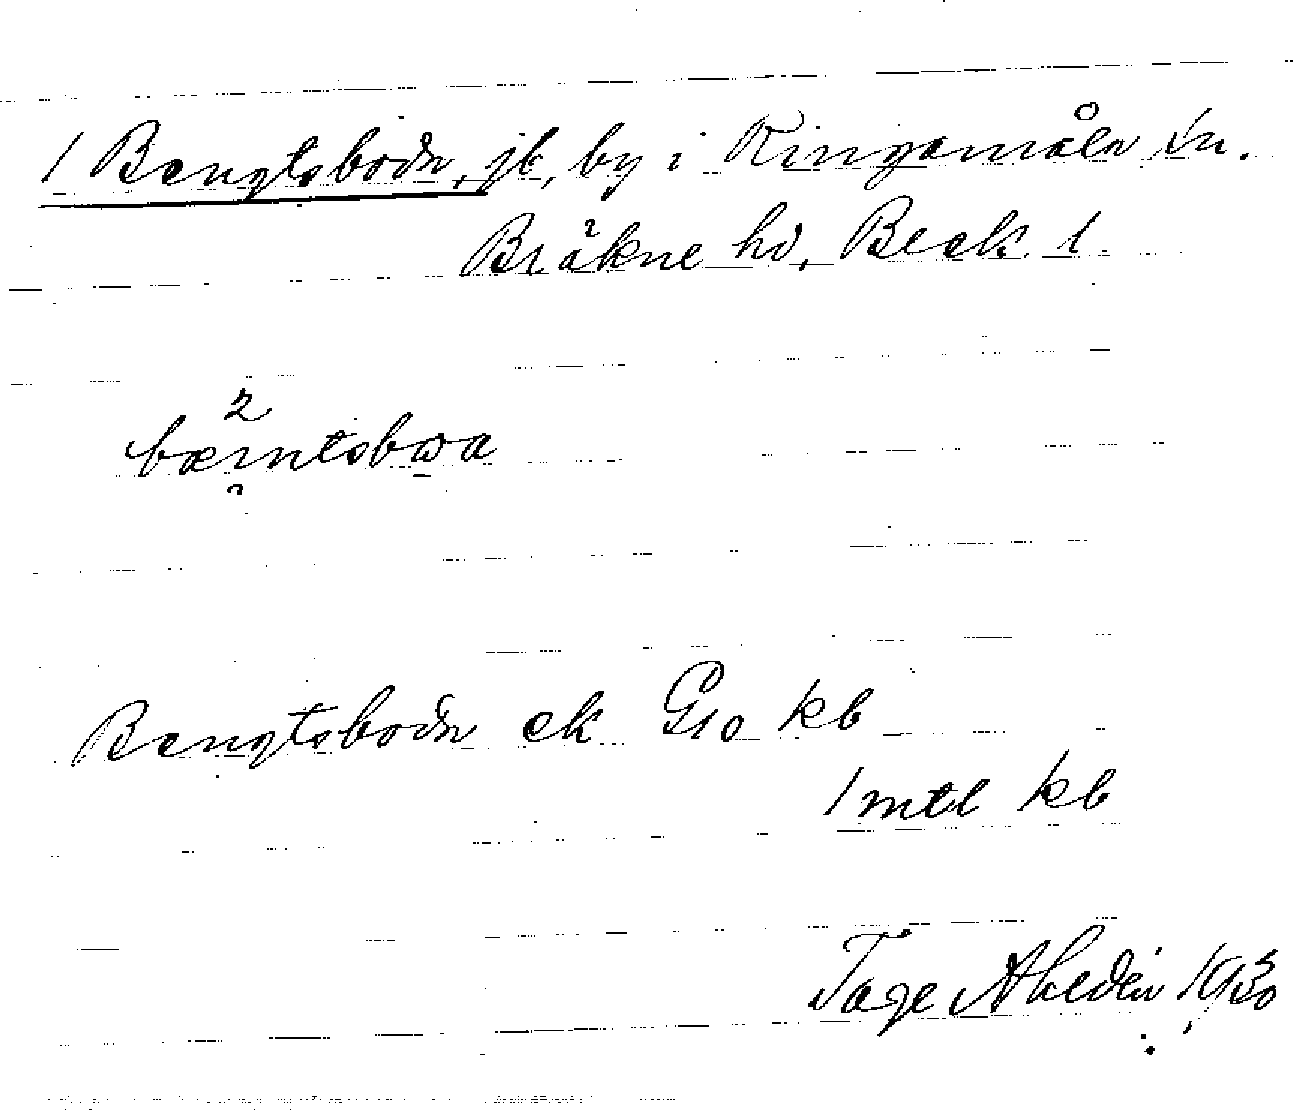 1 Bengtsboda, jb, by i Ringamåla sn.
Bräkne hd, Blek. l.
bærntsbωa
Bengtsboda ek Gio kb
1 mtl kb
Tage Ahldén 1930